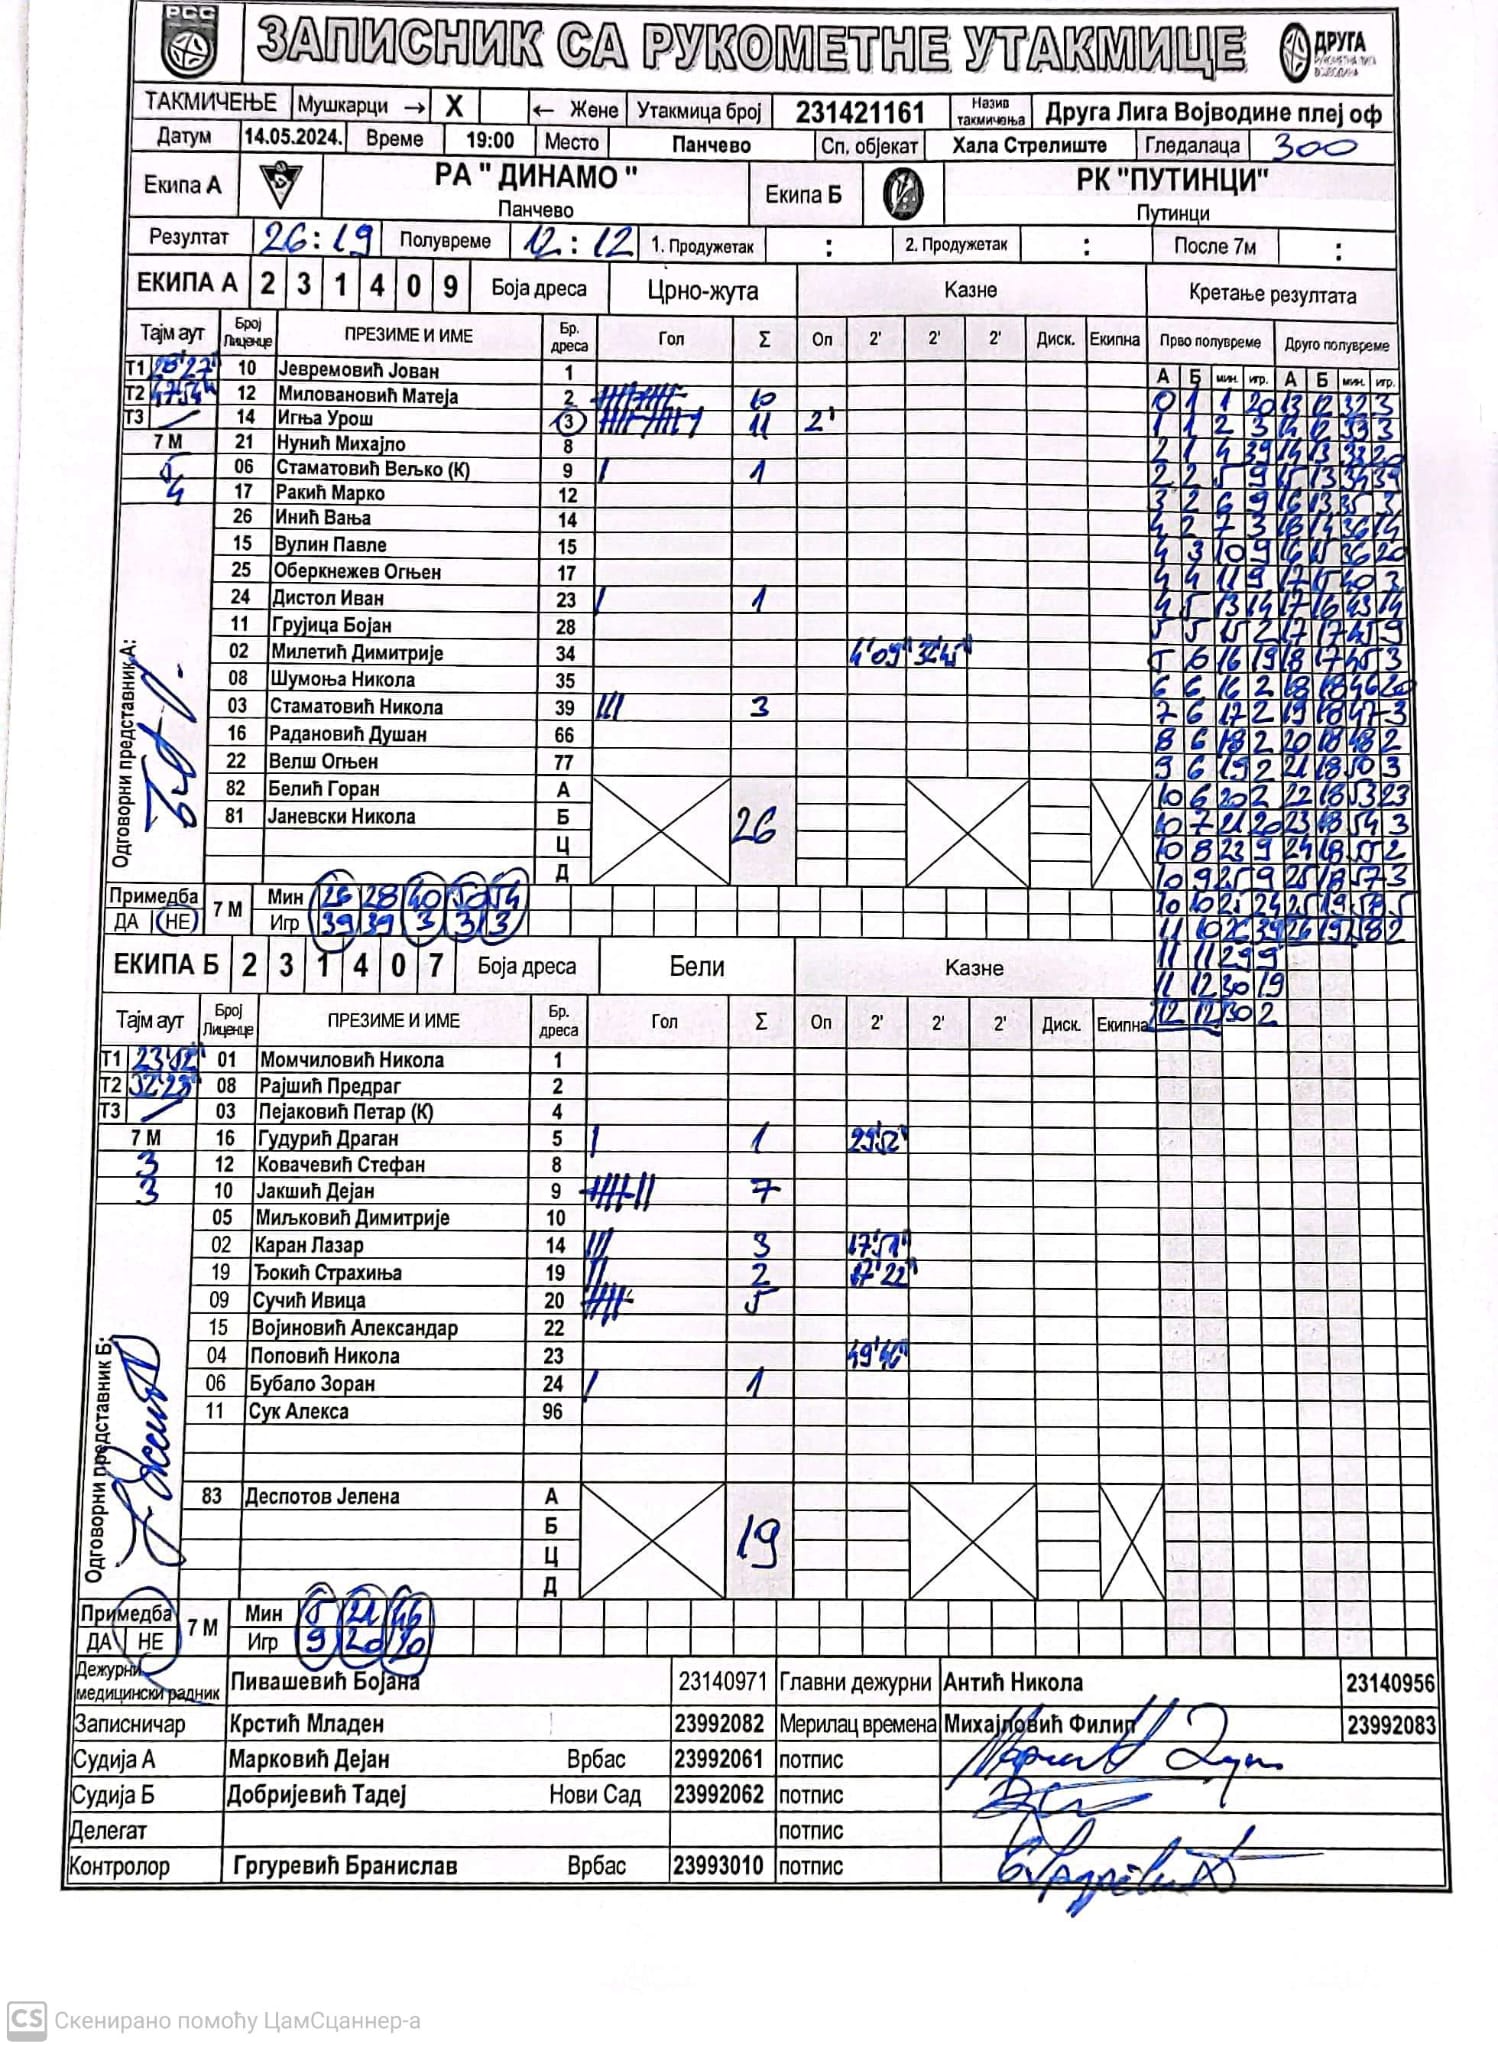 РСС
ЗАПИСНИК СА РУКОМЕТНЕ УТАКМИЦЕ
ДРУГА
РУКОМЕТНА ЛИГА
ВОЈВОДИНА
ТАКМИЧЕЊЕ Мушкарци → X ← Жене Утакмица број 231421161 Назив такмичења Друга Лига Војводине плеј оф
Датум 14.05.2024. Време 19:00 Место Панчево Сп. објекат Хала Стрелиште Гледалаца 300
Екипа А РА " ДИНАМО " Екипа Б РК "ПУТИНЦИ"
Панчево Путинци
Резултат 26:19 Полувреме 12:12 1. Продужетак : 2. Продужетак : После 7м :
ЕКИПА А 2 3 1 4 0 9 Боја дреса Црно-жута Казне Кретање резултата
Тајм аут Број Лиценце ПРЕЗИМЕ И ИМЕ Бр. дреса Гол Σ Оп 2' 2' 2' Диск. Екипна Прво полувреме Друго полувреме
А Б мин. игр. А Б мин. игр.
Т1 28'27" 10 Јевремовић Јован 1
Т2 47'54" 12 Миловановић Матеја 2 10
Т3 14 Игња Урош 3 11 2'
7 М 21 Нунић Михајло 8
5 06 Стаматовић Вељко (К) 9 1
4 17 Ракић Марко 12
26 Инић Вања 14
15 Вулин Павле 15
25 Оберкнежев Огњен 17
24 Дистол Иван 23 1
11 Грујица Бојан 28
02 Милетић Димитрије 34 4'09"
08 Шумоња Никола 35
03 Стаматовић Никола 39 3
16 Радановић Душан 66
22 Велш Огњен 77
82 Белић Горан А
81 Јаневски Никола Б 26
Ц
Д
Одговорни представник А:
0 1 1 20 13 12 32 3
1 1 2 3 14 12 33 3
2 1 4 39 14 13 33 20
2 2 5 9 15 13 34 39
3 2 6 9 16 13 35 3
4 2 7 3 16 14 36 14
4 3 10 9 16 15 36 20
4 4 11 9 17 15 40 3
4 5 13 14 17 16 43 14
5 5 15 2 17 17 45 9
5 6 16 19 18 17 45 3
6 6 16 2 18 18 46 20
7 6 17 2 19 18 47 3
8 6 18 2 20 18 48 2
9 6 19 2 21 18 50 3
10 6 20 2 22 18 53 23
10 7 21 20 23 18 54 3
10 8 23 9 24 18 55 2
10 9 25 9 25 18 57 3
10 10 25 24 25 19 58 5
11 10 26 39 26 19 58 2
11 11 29 9
11 12 30 19
12 12 30 2
Примедба 7 М Мин 26 28 40 50 54
ДА НЕ Игр 39 39 3 3 3
ЕКИПА Б 2 3 1 4 0 7 Боја дреса Бели Казне
Тајм аут Број Лиценце ПРЕЗИМЕ И ИМЕ Бр. дреса Гол Σ Оп 2' 2' 2' Диск. Екипна
Т1 23'52" 01 Момчиловић Никола 1
Т2 52'28" 08 Рајшић Предраг 2
Т3 03 Пејаковић Петар (К) 4
7 М 16 Гудурић Драган 5 1 29'52"
3 12 Ковачевић Стефан 8
3 10 Јакшић Дејан 9 7
05 Миљковић Димитрије 10
02 Каран Лазар 14 3 17'51"
19 Ђокић Страхиња 19 2 17'22"
09 Сучић Ивица 20 5
15 Војиновић Александар 22
04 Поповић Никола 23 49'46"
06 Бубало Зоран 24 1
11 Сук Алекса 96
83 Деспотов Јелена А
Б 19
Ц
Д
Одговорни представник Б:
Примедба 7 М Мин 5 21 46
ДА НЕ Игр 9 20 20
Дежурни медицински радник Пивашевић Бојана 23140971 Главни дежурни Антић Никола 23140956
Записничар Крстић Младен 23992082 Мерилац времена Михајловић Филип 23992083
Судија А Марковић Дејан Врбас 23992061 потпис
Судија Б Добријевић Тадеј Нови Сад 23992062 потпис
Делегат потпис
Контролор Гргуревић Бранислав Врбас 23993010 потпис
CS Скенирано помоћу ЦамСцаннер-а